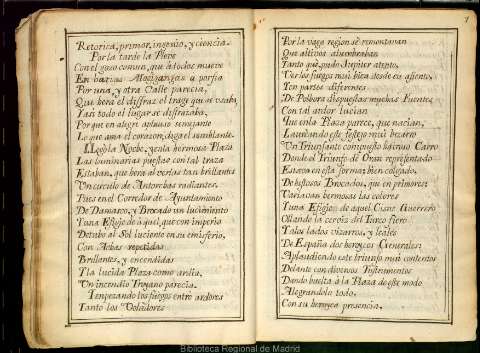 Retorica, primor, ingenio, y ciencia.
Por la tarde la Plebe
Con el gozo comun, que a todos mueve
En varias Mogigangas a porfia
Por una, y otra Calle parecia,
Que hera el disfraz el trage que se usaba,
Y asi todo el lugar se disfrazaba,
Por que en alegre aplauso semejante
Lo que ama el corazon, diga el semblante.
Llegó la Noche, y en la hermosa Plaza
Las luminarias puestas con tal traza
Estaban, que hera al verlas tan brillantes
Un circulo de Antorchas radiantes.
Pues en el Corredor de Ayuntamiento
De Damasco, y Brocado un lucimiento
Y una Efigie de aquel, que con imperio
Detubo al Sol luciente en su emisferio,
Con Achas repetidas
Brillantes, y encendidas
Y la lucida Plaza como ardia,
Un incendio Troyano parecia.
Empezando los fuegos entre ardores
Tanto los Voladores
7
Por la vaga region se remontavan
Que altivos alumbraban
Tanto que pudo Jupiter atento,
Ver los fuegos mui bien desde su asiento,
Ten partes diferentes
De Polbora dispuestas muchas Fuentes,
Con tal ardor lucian
Que en la Plaza parece, que nacian,
Laureando este festejo mui bizarro
Un Triunfante compuesto altivo Carro
Donde el Triunfo de Oran representado
Estava en esta forma: bien colgado,
De vistosos Brocados, que en primores,
Variavan hermosas las colores
Y una Efigie de aquel Cisne Guerrero
Ollando la cerviz del Turco fiero
Y a los lados vizarros, y leales
De España dos heroycos Generales:
Aplaudiendo este triunfo mui contentos
Delante con diversos Instrumentos
Dando buelta à la Plaza de este modo
Alegrandolo todo.
Con su heroyca presencia,
Biblioteca Regional de Madrid